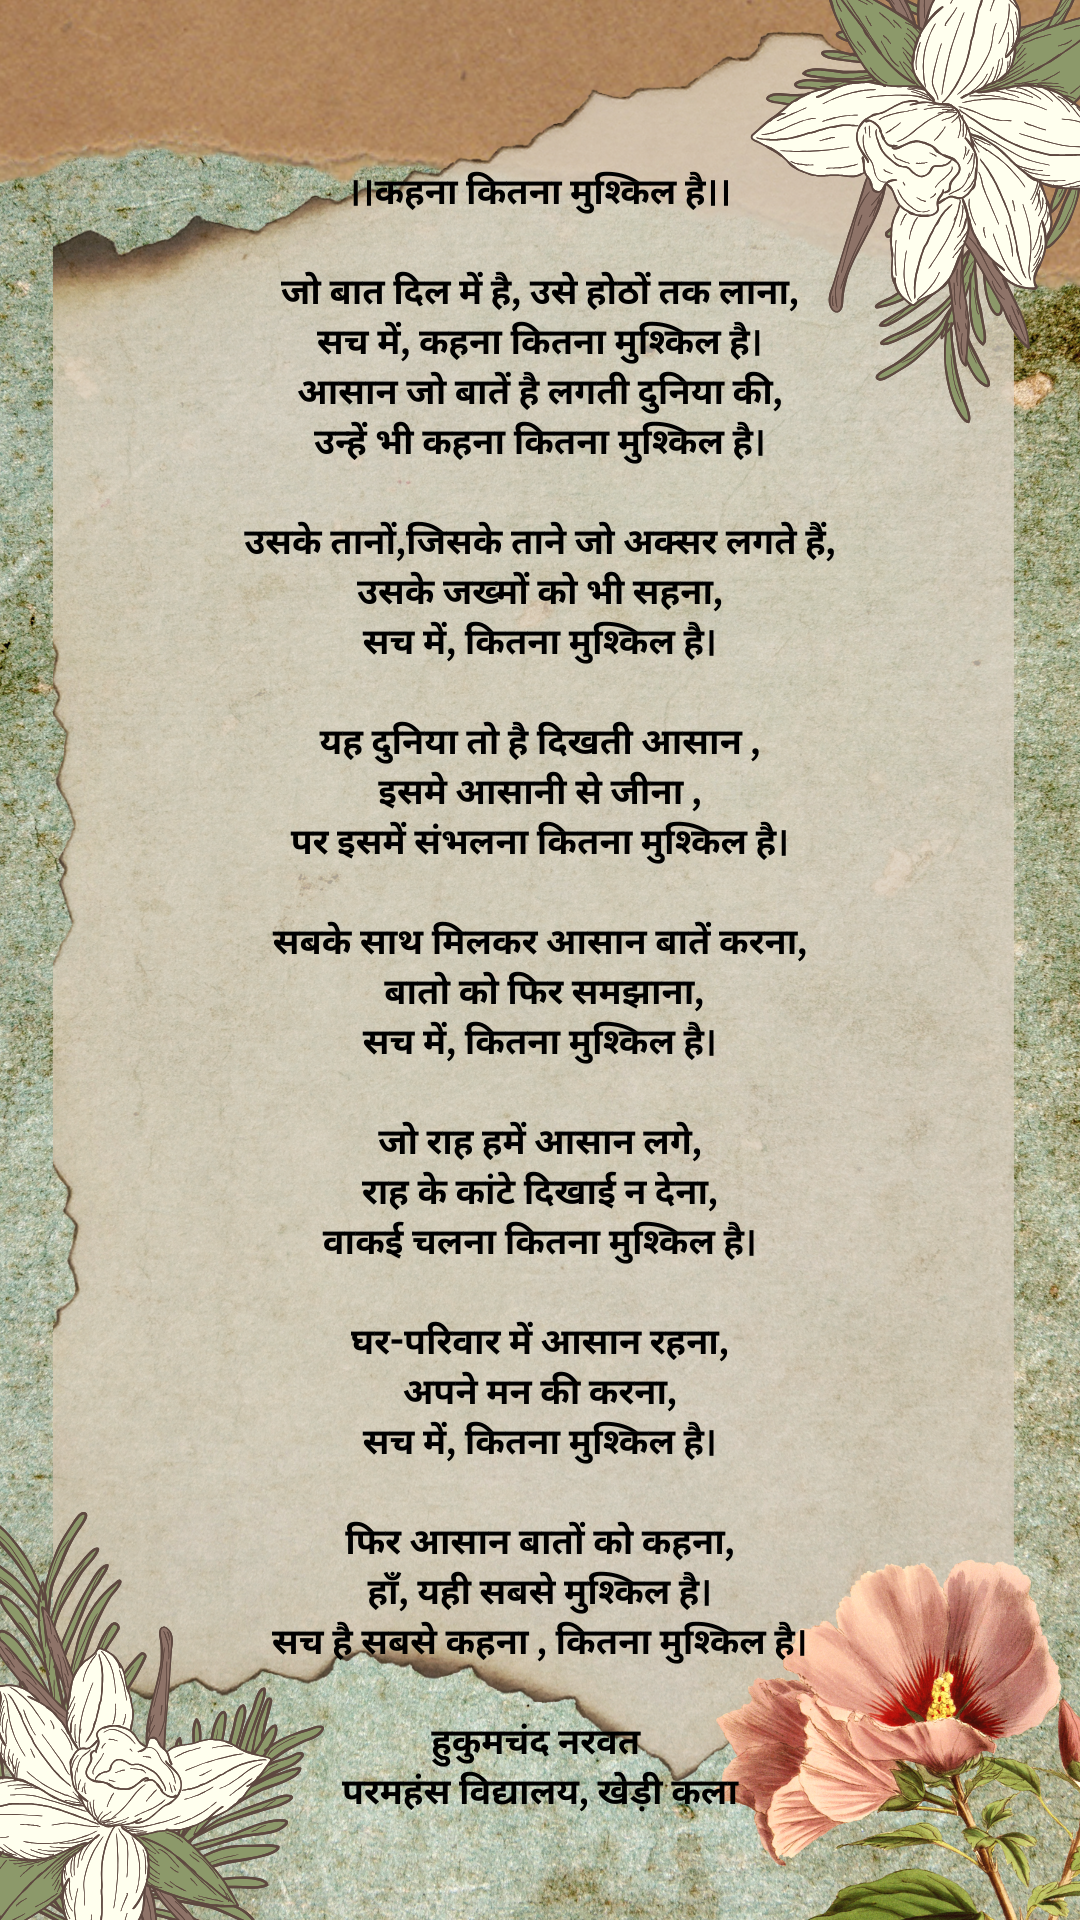 ।।कहना कितना मुश्किल है।।
जो बात दिल में है, उसे होठों तक लाना,
सच में, कहना कितना मुश्किल है।
आसान जो बातें है लगती दुनिया की,
उन्हें भी कहना कितना मुश्किल है।
उसके तानों,जिसके ताने जो अक्सर लगते हैं,
उसके जख्मों को भी सहना,
सच में, कितना मुश्किल है।
यह दुनिया तो है दिखती आसान ,
इसमे आसानी से जीना ,
पर इसमें संभलना कितना मुश्किल है।
सबके साथ मिलकर आसान बातें करना,
बातो को फिर समझाना,
सच में, कितना मुश्किल है।
जो राह हमें आसान लगे,
राह के कांटे दिखाई न देना,
वाकई चलना कितना मुश्किल है।
घर-परिवार में आसान रहना,
अपने मन की करना,
सच में, कितना मुश्किल है।
फिर आसान बातों को कहना,
हाँ, यही सबसे मुश्किल है।
सच है सबसे कहना , कितना मुश्किल है।
हुकुमचंद नरवत
परमहंस विद्यालय, खेड़ी कला